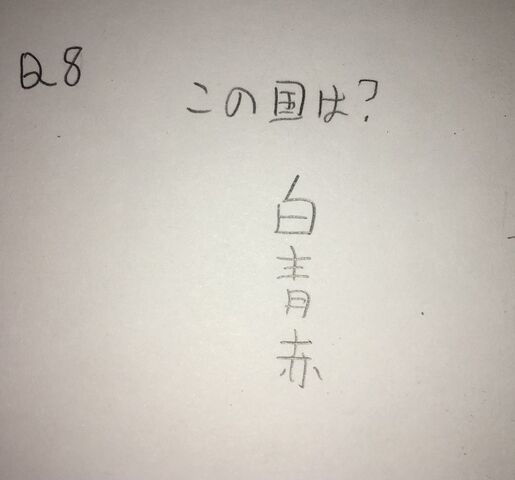 Q8
この国は?
白
青
赤